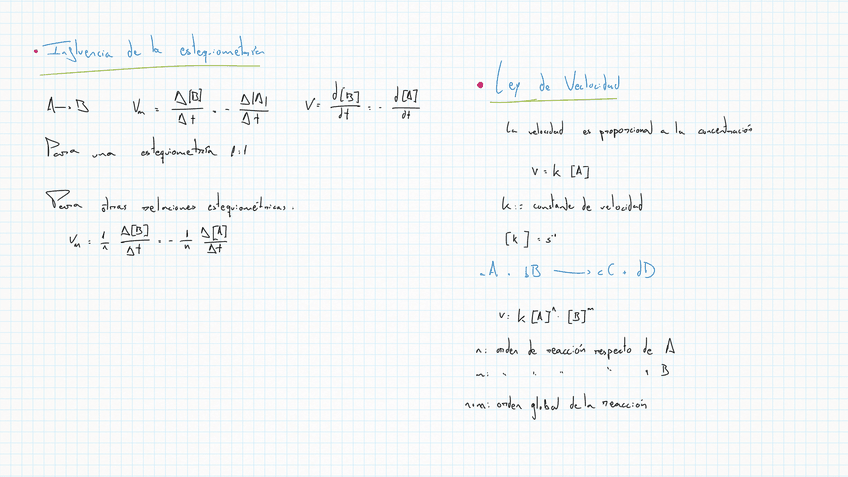 • Influencia de la estequiometría
A → B    Vm = Δ[B]/Δt = - Δ[A]/Δt    V = d[B]/dt = - d[A]/dt
Para una estequiometría 1:1
Para otras relaciones estequiométricas.
Vm = 1/n Δ[B]/Δt = - 1/n Δ[A]/Δt
• Ley de Velocidad
La velocidad es proporcional a la concentración
v = k [A]
k := constante de velocidad
[k] = s⁻¹
aA + bB → cC + dD
v = k [A]ⁿ · [B]ᵐ
n: orden de reacción respecto de A
m: " " " " " B
n+m: orden global de la reacción